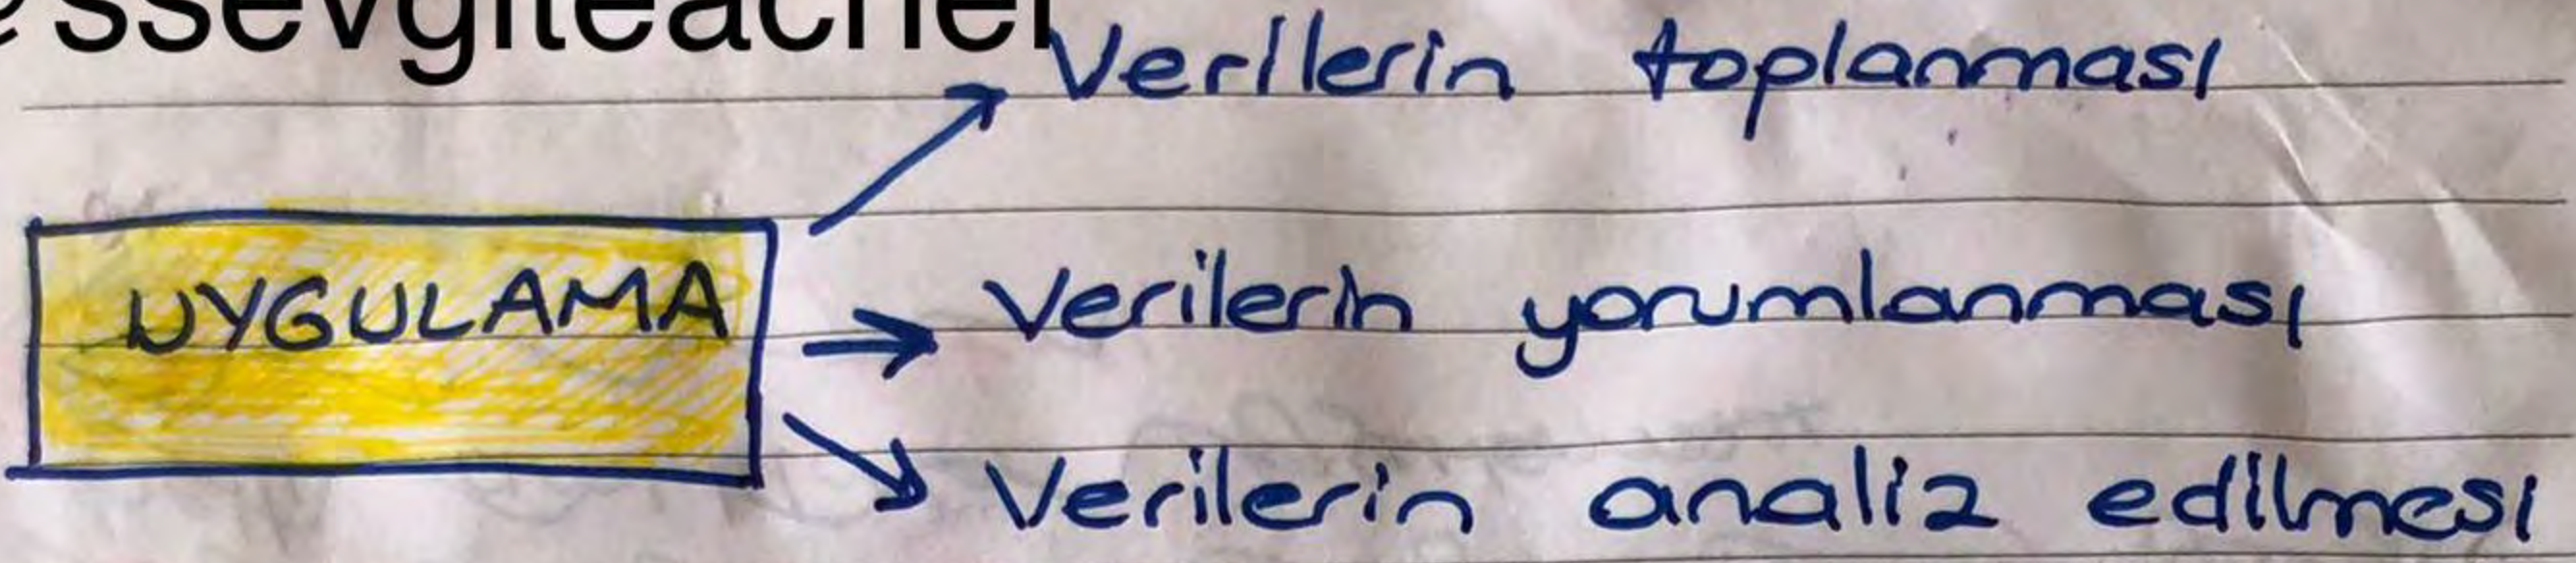 @ssevgiteacher
Verilerin toplanması
UYGULAMA
Verilerin yorumlanması
Verilerin analiz edilmesi